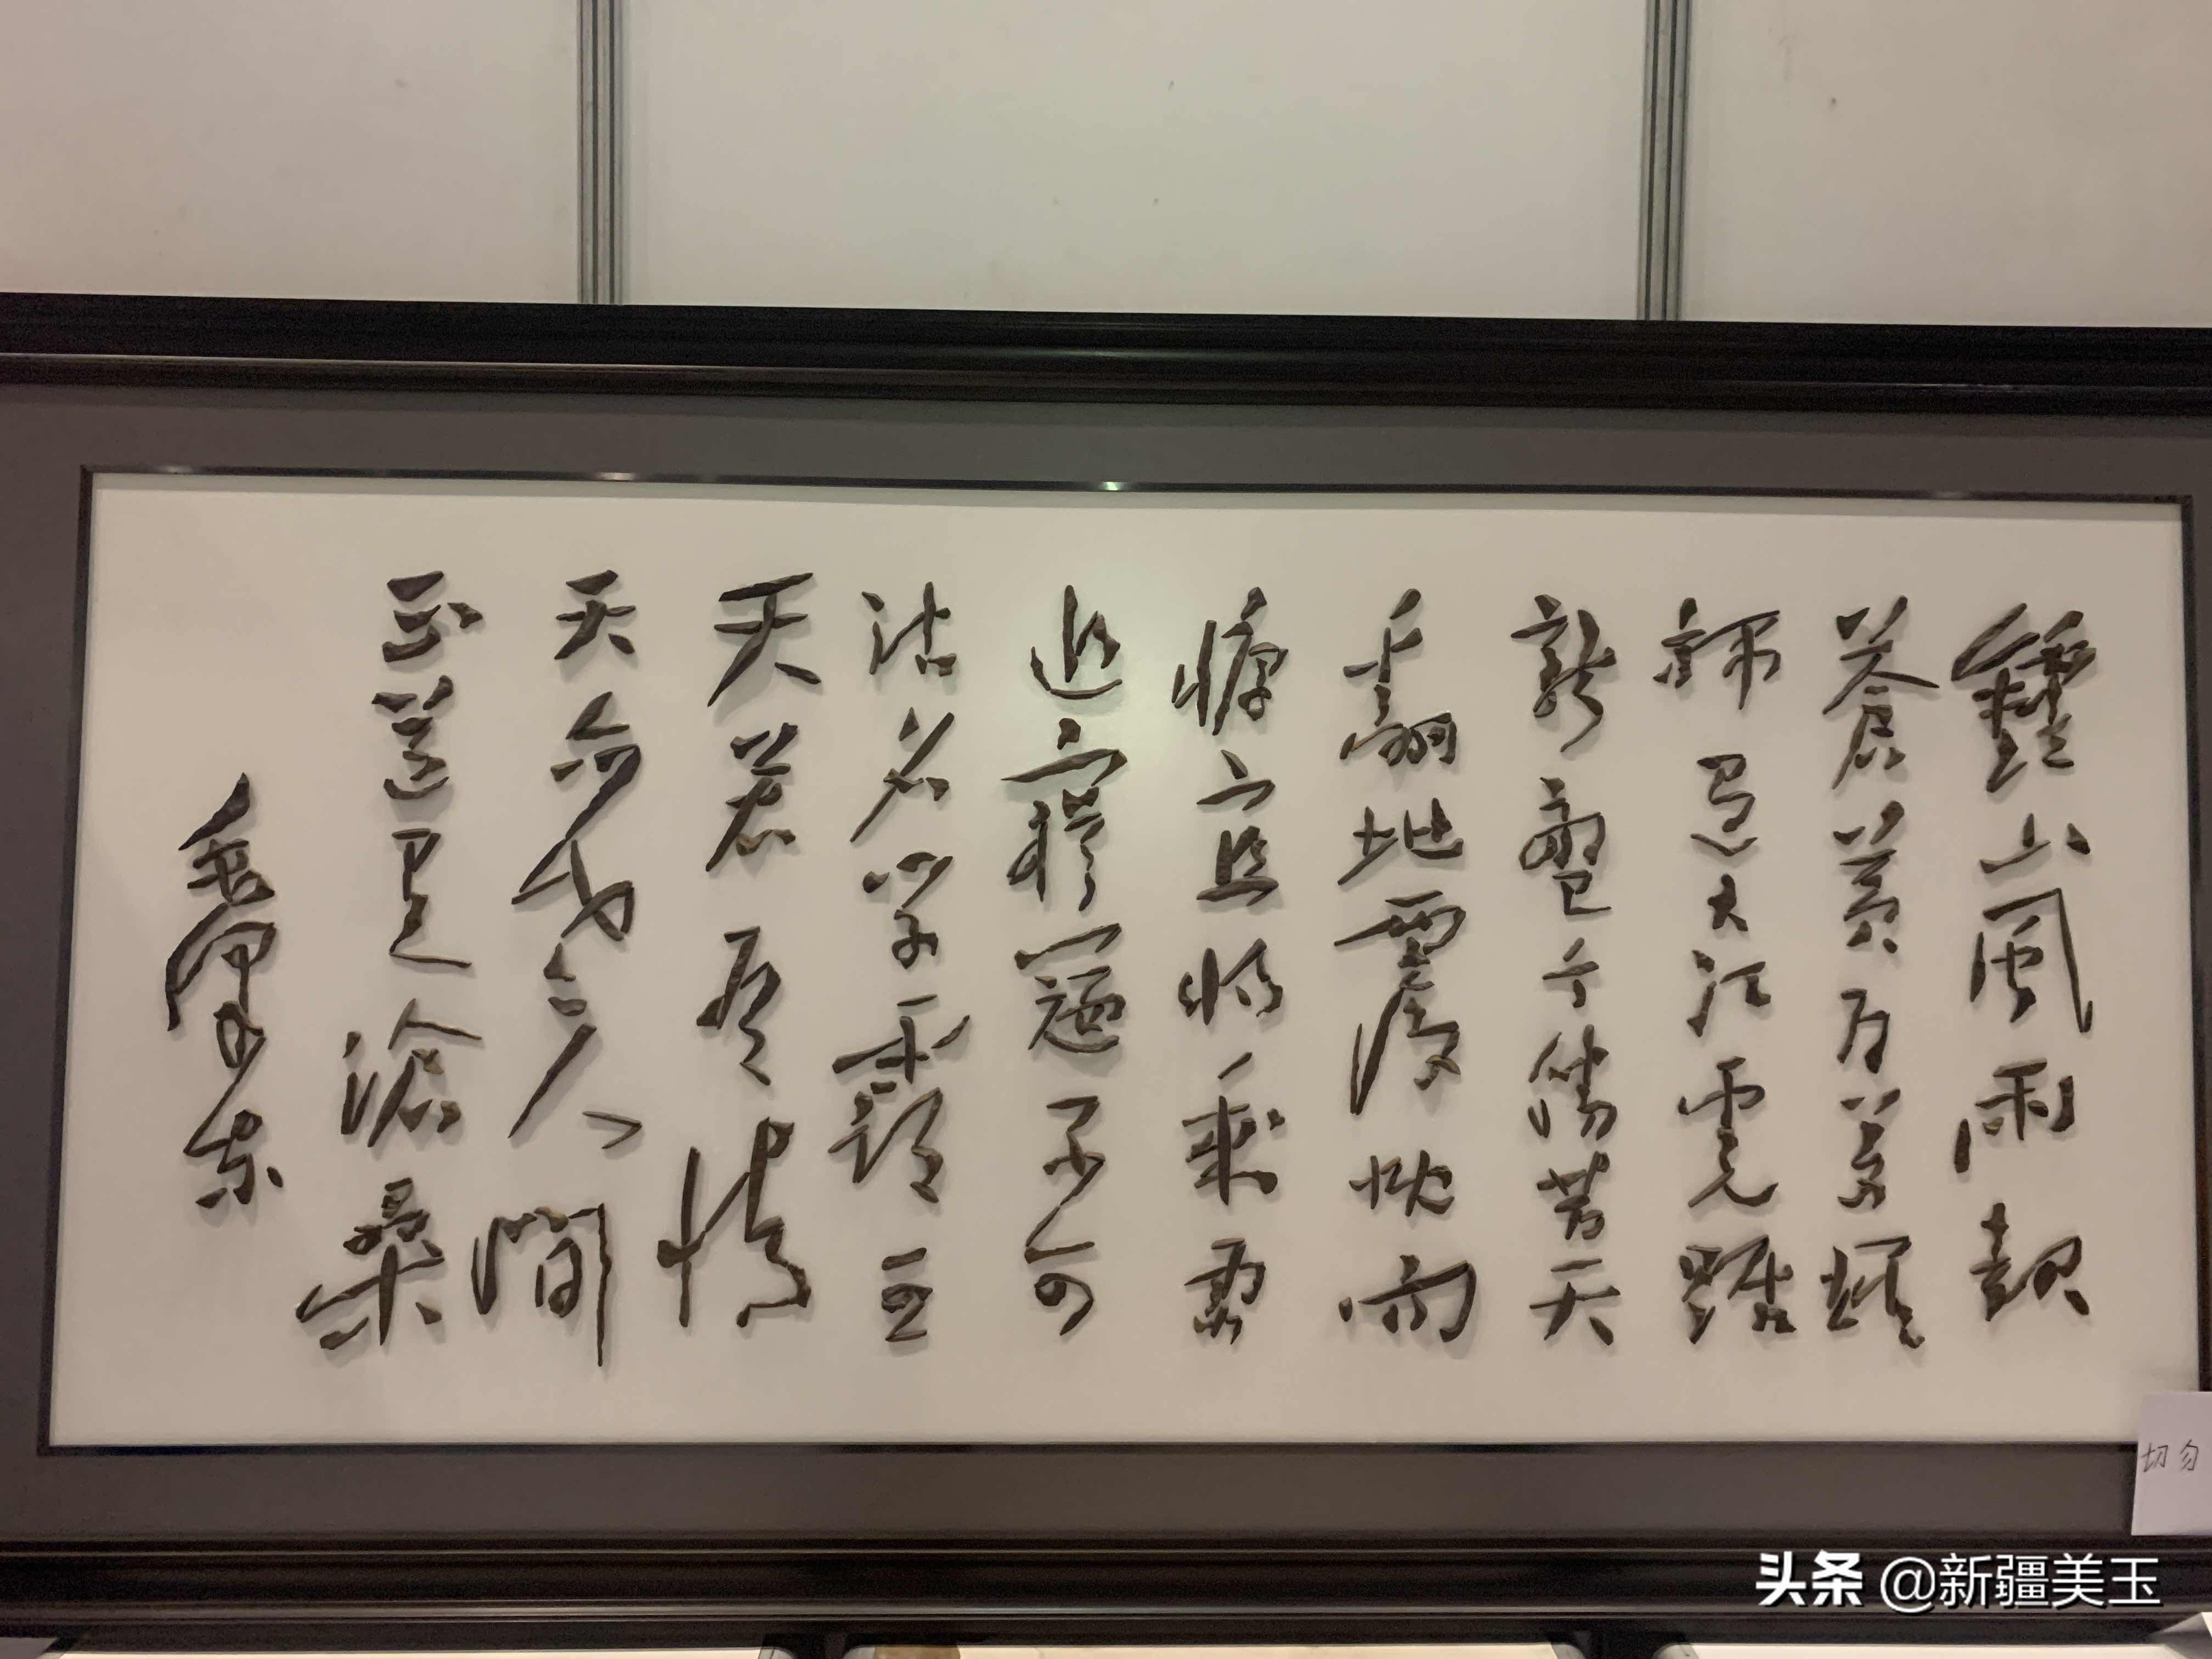 鍾山風雨起
蒼黃百萬雄
師過大江虎踞
龍盤今勝昔天
翻地覆慨而
慷宜將剩勇
追窮寇不可
沽名學霸王
天若有情
天亦老人間
正道是滄桑
毛澤東
切勿
头条 @新疆美玉